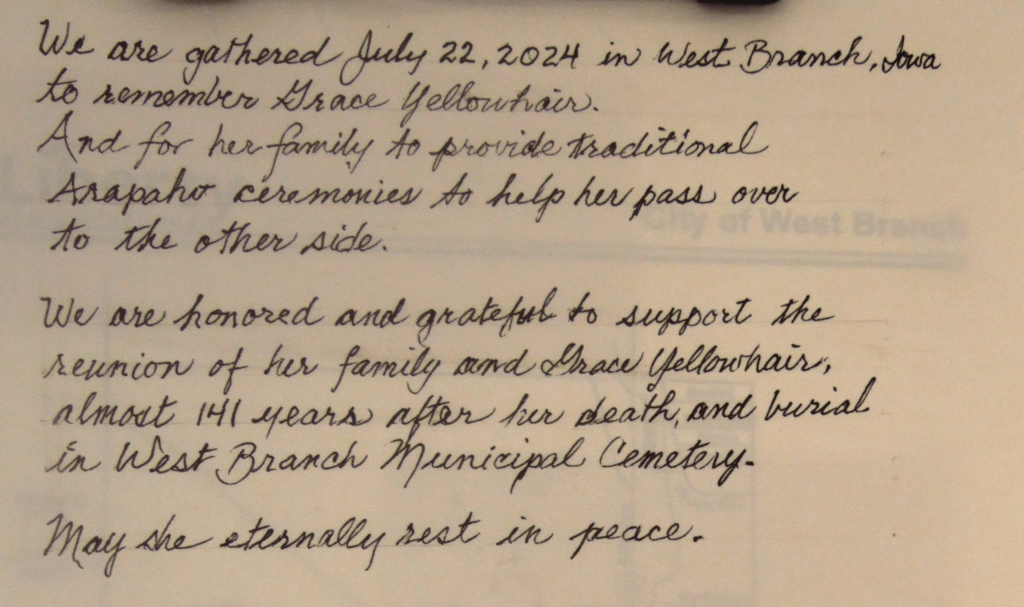 We are gathered July 22, 2024 in West Branch, Iowa
to remember Grace Yellowhair.
And for her family to provide traditional
Arapaho ceremonies to help her pass over
to the other side.
City of West Branch
We are honored and grateful to support the
reunion of her family and Grace Yellowhair,
almost 141 years after her death, and burial
in West Branch Municipal Cemetery.
May she eternally rest in peace.